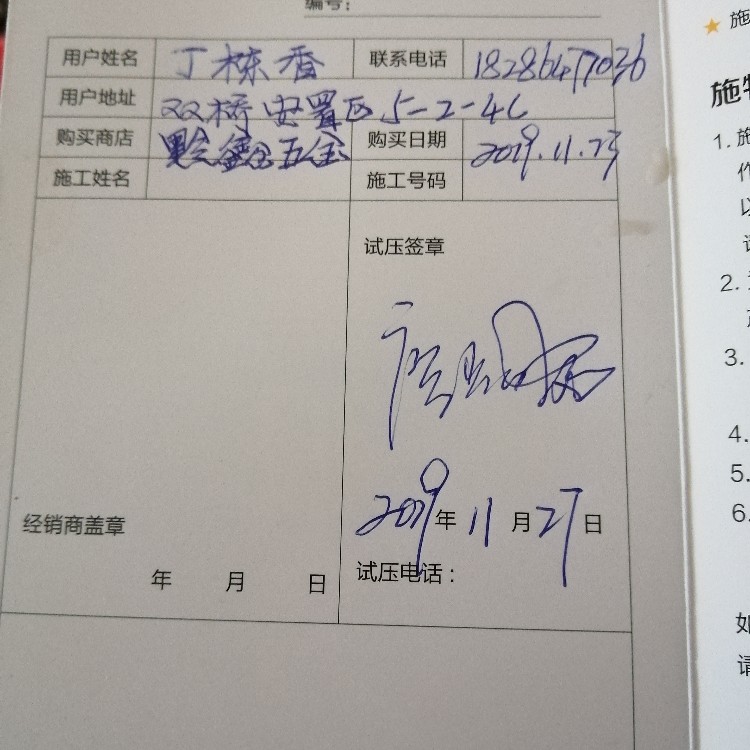 编号:
用户姓名 丁栋香 联系电话 18286477036
用户地址 双桥安置区5-2-4C
购买商店 黔鑫五金 购买日期 2019.11.23
施工姓名 施工号码
试压签章
2019年11月27日
经销商盖章
年 月 日
试压电话:
施
施
1.施
作
以
请
2.
3.
4.
5.
6.
如
请